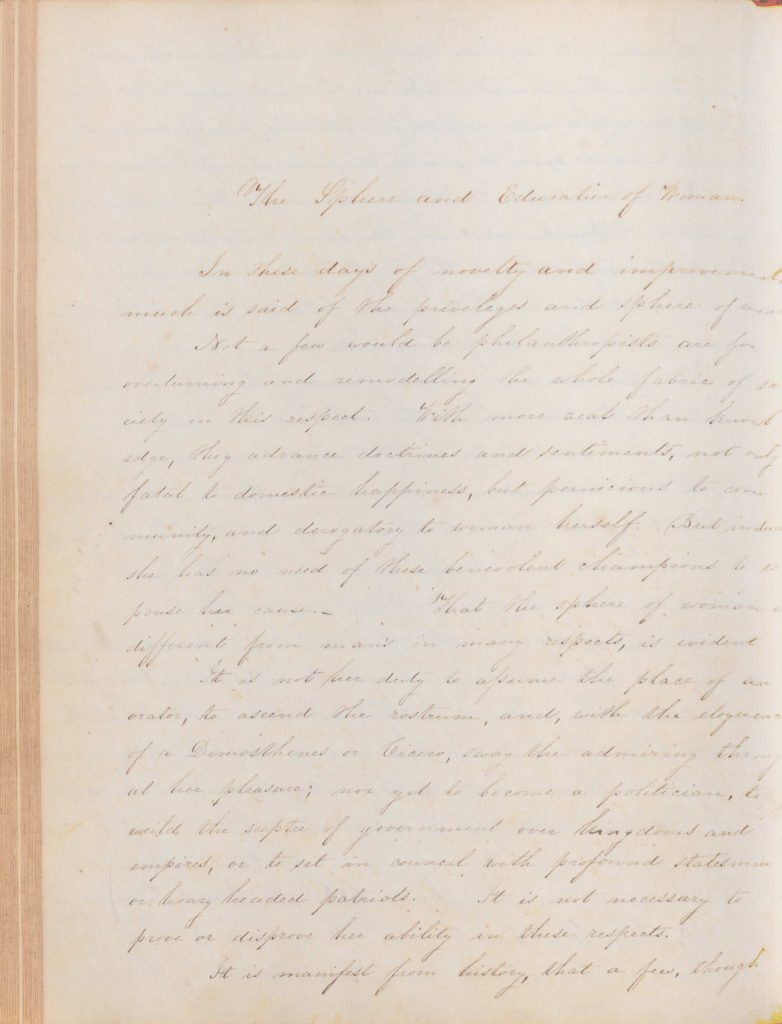 The Sphere and Education of Woman.
In these days of novelty and improvement
much is said of the priveleges and sphere of
Not a few would be philanthropists are for
overturning and remodelling the whole fabric of so
ciety in this respect. With more zeal than knowl
edge, they advance doctrines and sentiments, not only
fatal to domestic happiness, but pernicious to com
munity, and derogatory to woman herself. But indeed
she has no need of these benevolent champions to es
pouse her cause. — That the sphere of woman is
different from man's in many respects, is evident
It is not her duty to assume the place of an
orator, to ascend the rostrum, and, with the eloquence
of a Demosthenes or Cicero, sway the admiring throng
at her pleasure; nor yet to become a politician, to
weild the sceptre of government over kingdoms and
empires, or to sit in council with profound statesmen
or hoary headed patriots. It is not necessary to
prove or disprove her ability in these respects.
It is manifest from history, that a few, though